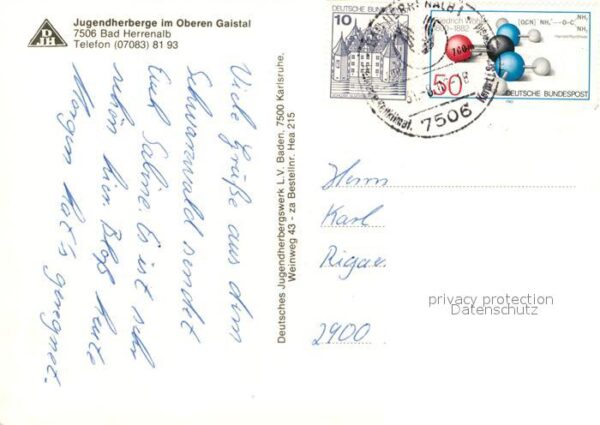 Jugendherberge im Oberen Gaistal
7506 Bad Herrenalb
Telefon (07083) 81 93
DJH
Viele Grüße aus dem
Schwarzwald sendet
Euch Sabine. Es ist sehr
schön hier. Bloß heute
Morgen hat's geregnet.
Deutsches Jugendherbergswerk L.V. Baden, 7500 Karlsruhe,
Weinweg 43 - za Bestellnr. Hea 215
10
DEUTSCHE BUNDESPOST
Friedrich Wöhler
1800-1882
50
DEUTSCHE BUNDESPOST
7506
Herrn
Karl
2900
privacy protection
Datenschutz